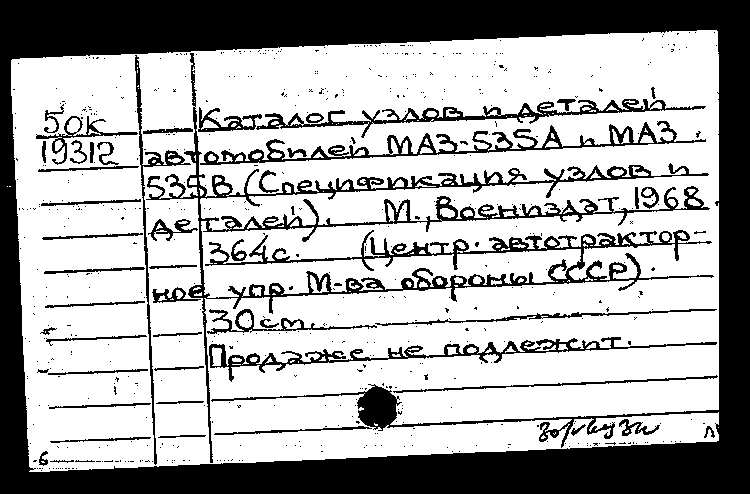 50к
19312
Каталог узлов и деталей
автомобилей МАЗ-535А и МАЗ
535В. (Спецификация узлов и
деталей). М., Воениздат, 1968.
364с. (Центр. автотрактор-
ное упр. М-ва обороны СССР).
30см.
Продаже не подлежит.
6